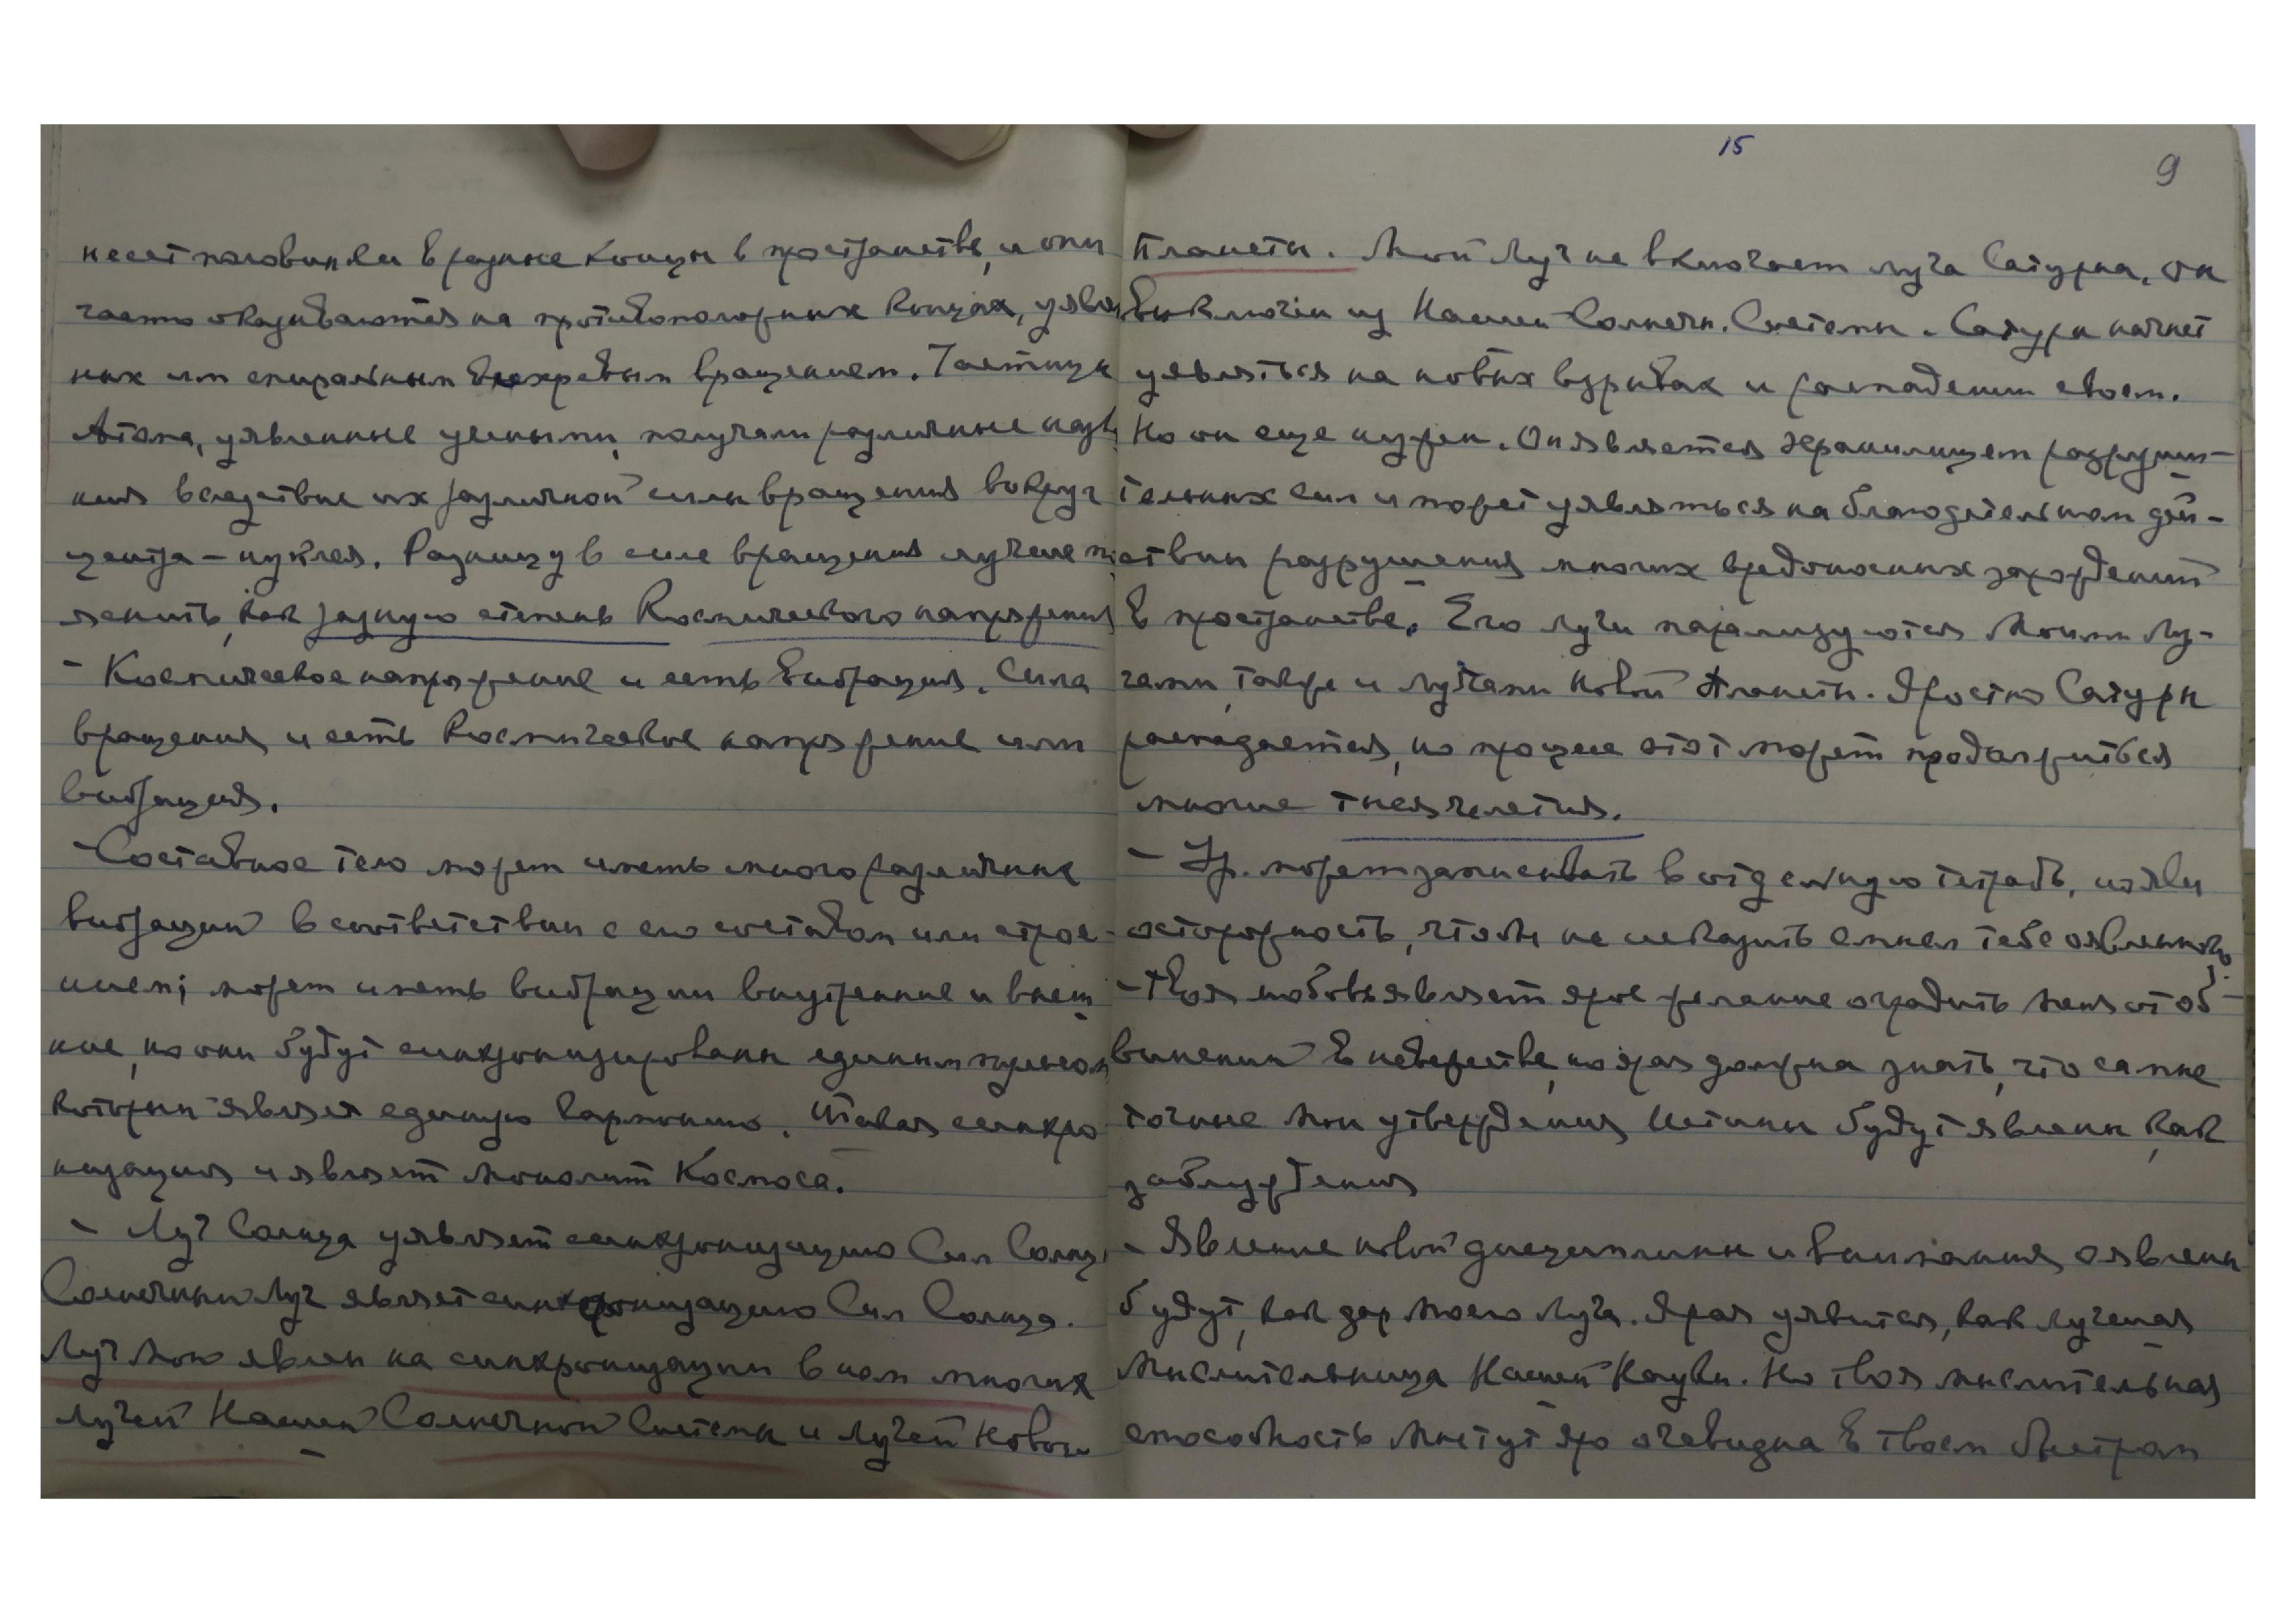 несет половинки в разные концы в пространстве, и они
часто оказываются на противоположных концах, уявл
ных им спиральным вихревым вращением. Частицы
Атома, уявленные учеными, получали различные назв
ния вследствие их различной силы вращения вокруг
центра – нуклея. Разницу в силе вращения лучше
яснить, как разную степень Космического напряжения
– Космическое напряжение и есть вибрация. Сила
вращения и есть Космическое напряжение или
вибрация.
– Составное тело может иметь много различных
вибраций в соответствии с его составом или строе-
нием; может иметь вибрации внутренние и внеш
ние, но они будут синхронизированы единым
который являя единую гармонию. Такая синхро
низация и являет монолит Космоса.
– Луч Солнца уявляет синхронизацию Сил Солнц
Солнечный Луч являет синхронизацию Сил Солнца.
Луч Мой явлен на синхронизации в нем многих
лучей Нашей Солнечной Системы и лучей Новой
15
9
Планеты. Мой Луч не включает луча Сатурна, он
выключен из Нашей Солнечн. Системы. Сатурн начнет
уявляться на новых взрывах и распадении своем.
Но он еще нужен. Он является хранилищем разруши-
тельных сил и может уявляться на благодетельном дей-
ствии разрушения многих вредоносных зарождений
в пространстве. Его лучи парализуются Моими Лу-
чами, также и лучами Новой Планеты. Яростно Сатурн
распадается, но процесс этот может продолжиться
многие тысячелетия.
– Ур. может записывать в отдельную тетрадь, но яви
осторожность, чтобы не исказить смысл тебе оявленного.
– Твоя любовь являет ярое желание оградить Меня от об-
винений в невежестве, но ярая должна знать, что самые
точные Мои утверждения Истины будут явлены, как
заблуждения
– Явление новой дисциплины и внимания оявлены
будут, как дар Моего Луча. Ярая уявится, как лучшая
Мыслительница Нашей Науки. Но твоя мыслительная
способность Мне тут яро очевидна в твоем быстром